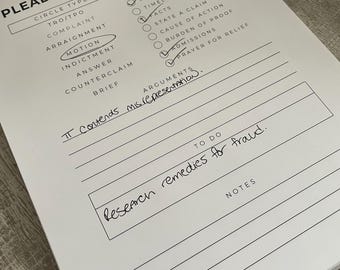 PLEA
CIRCLE TYPE
TRO/TPO
COMPLAINT
ARRAIGNMENT
MOTION
INDICTMENT
ANSWER
COUNTERCLAIM
BRIEF
TIME
FACTS
STATE A CLAIM
CAUSE OF ACTION
BURDEN OF PROOF
ADMISSIONS
PRAYER FOR RELIEF
ARGUMENTS
π contends misrepresentation.
TO DO
Research remedies for fraud.
NOTES